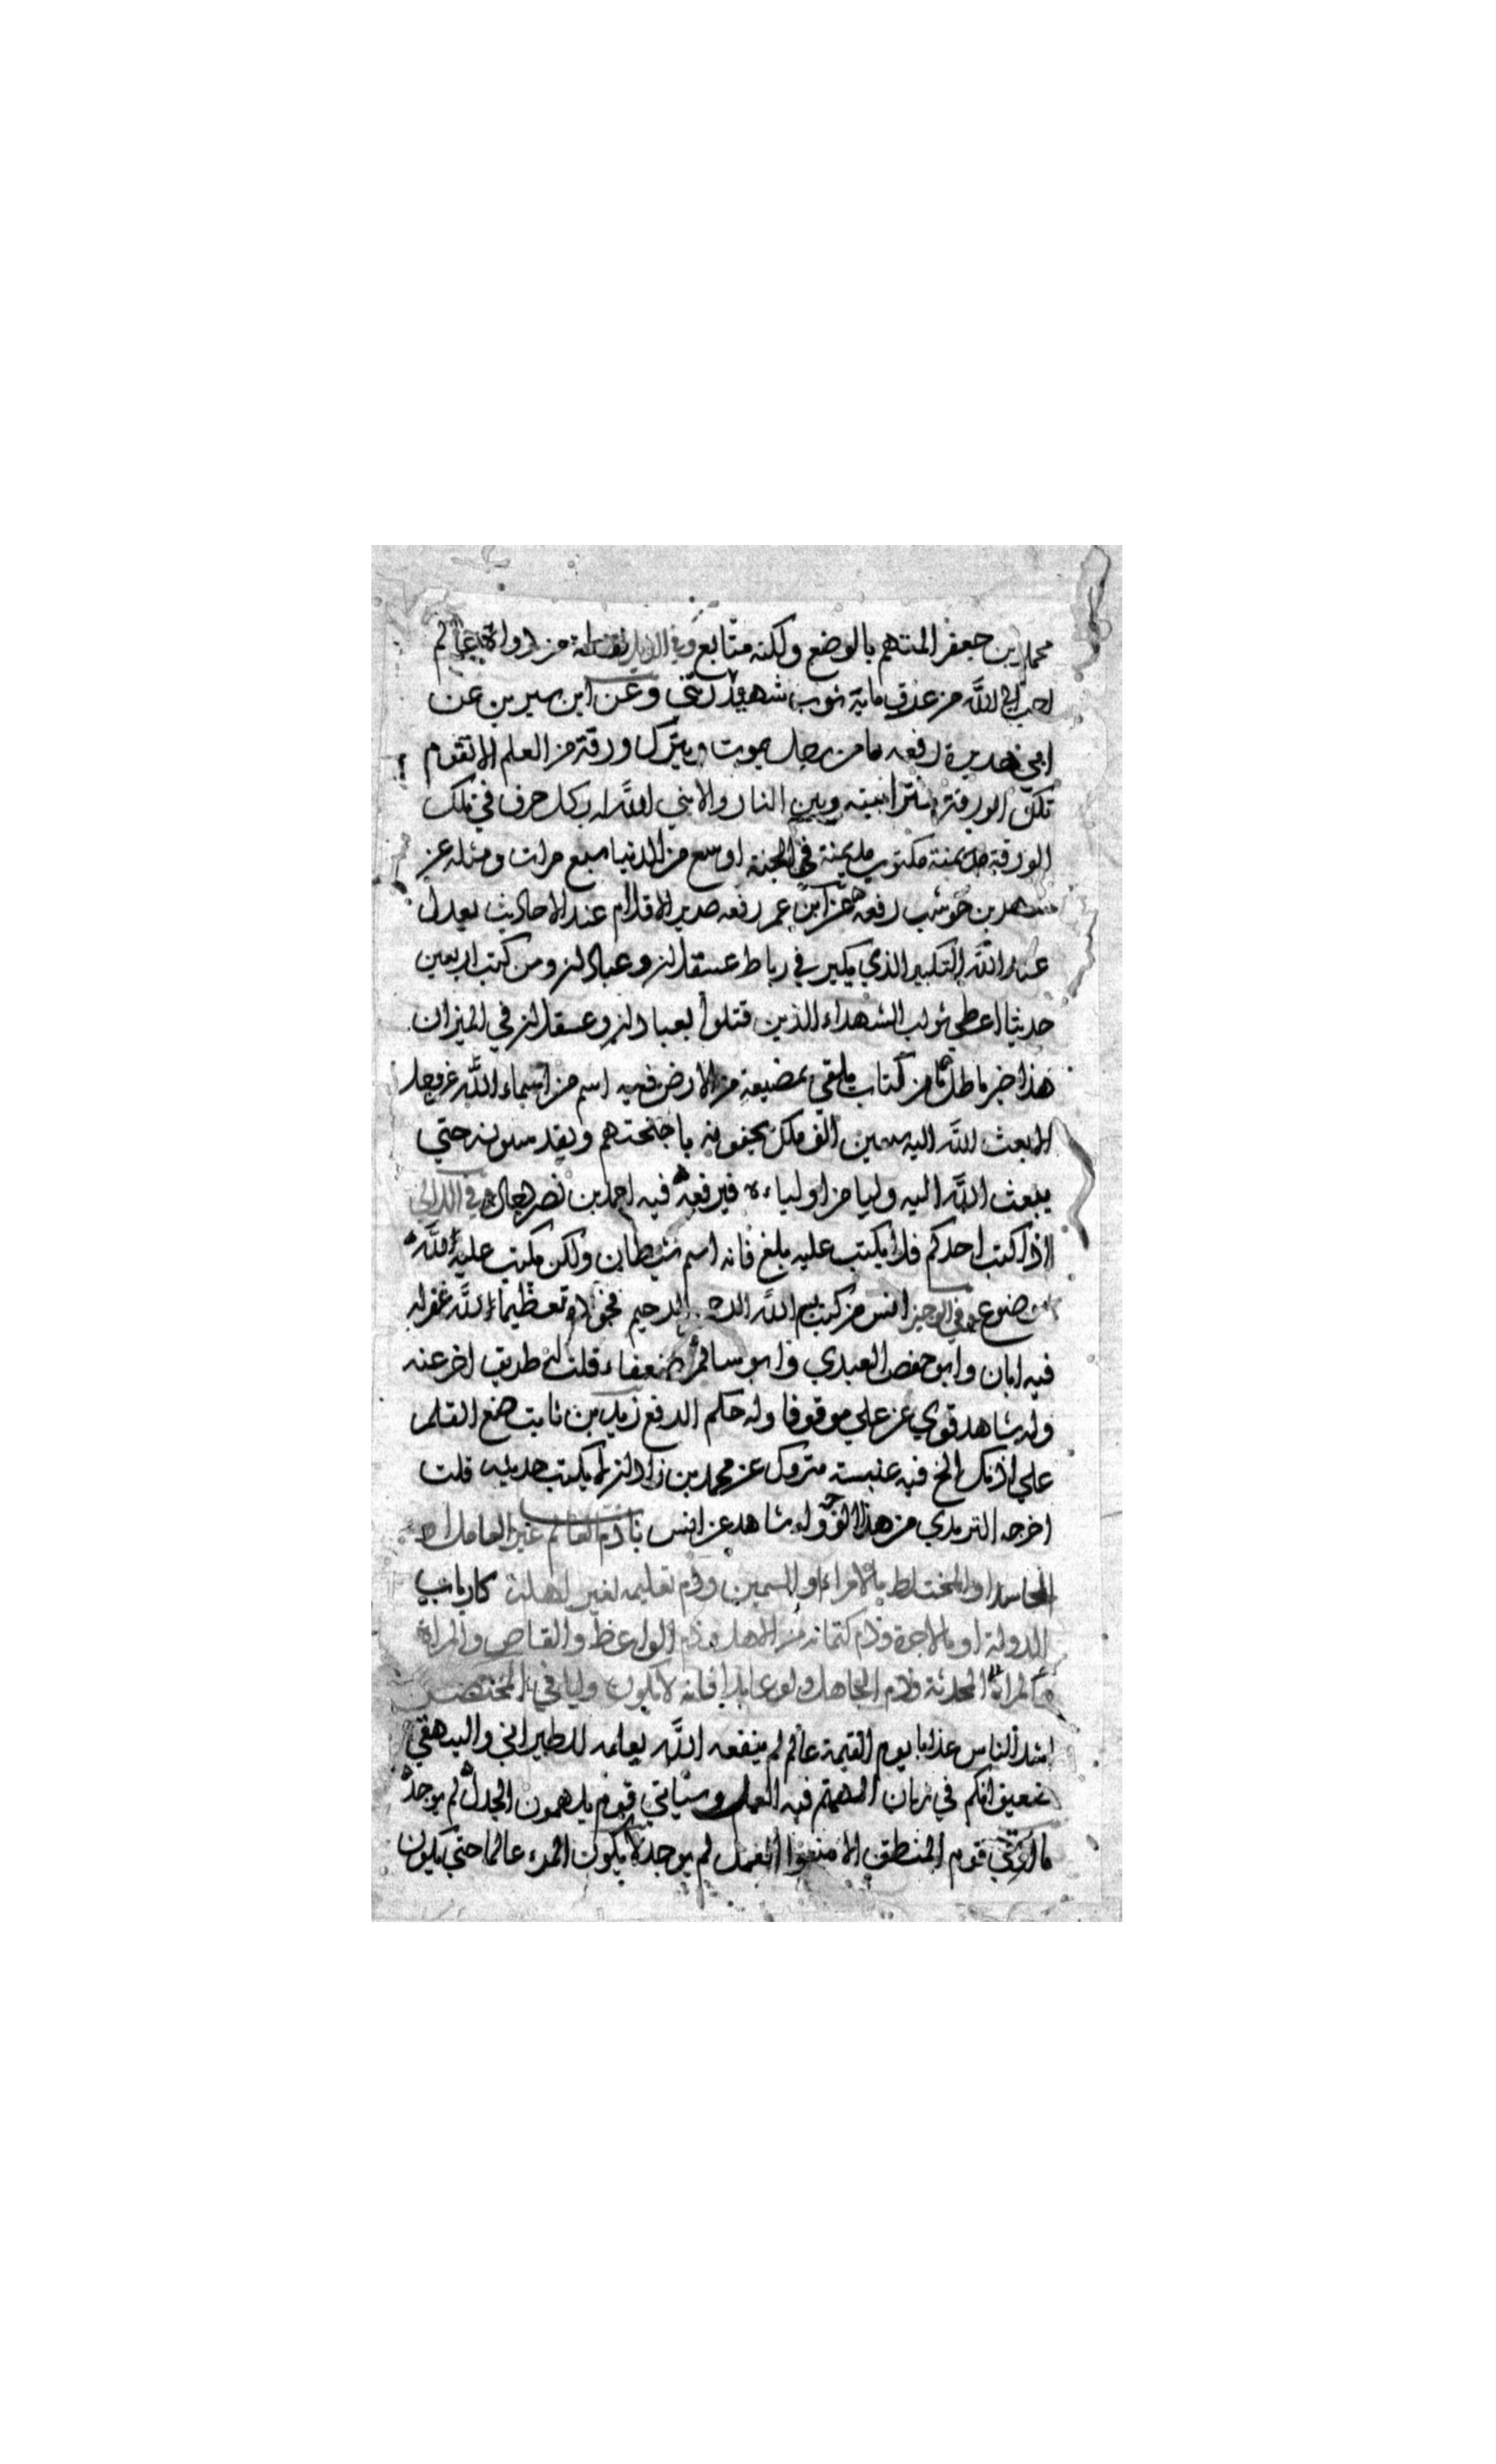 محمد بن جعفر المتهم بالوضع ولكنه متابع وفي الذيل نقطة من دواة عالم
احب الى الله من عرق ماية ثوب شهيد وعن ابن سيرين عن
ابي هريرة رفعه ما من رجل يموت ويترك ورقة من العلم الا تقوم
تلك الورقة سترا بينه وبين النار والا بني الله له بكل حرف في تلك
الورقة مكتوب مدينة في الجنة اوسع من الدنيا سبع مرات ومثله عن
شهر بن حوشب رفعه عن ابن عمر رفعه صرير الاقلام عند الاحاديث يعدل
عند الله التكبير الذي يكبر في رباط عسقلان وعبادان ومن كتب اربعين
حديثا اعطي ثواب الشهداء الذين قتلوا بعبادان وعسقلان في الميزان
هذا خبر باطل ما من كتاب ملقى بمضيعة من الارض فيه اسم من اسماء الله عز وجل
الا بعث الله اليه سبعين الف ملك يحفونه باجنحتهم ويقدسونه حتي
يبعث الله اليه وليا من اولياءه فيرفعه فيه احمد بن نصر في اللالي
اذا كتب احدكم فلا يكتب عليه بلغ فانه اسم شيطان ولكن يكتب عليه الله
موضوع في الوجيز انس من كتب بسم الله الرحمن الرحيم تعظيما لله غفر له
فيه ابان وابو حفص العبدي وابو سالم ضعفاء قلت له طريق اخر عنه
وله شاهد قوي عن علي موقوفا وله حكم الرفع زيد بن ثابت ضع القلم
علي اذنك الخ فيه عنبسة متروك عن محمد بن زاذان لا يكتب حديثه قلت
اخرجه الترمذي من هذا وله شاهد عن انس باب ذم العالم غير العامل او
الحاسد او المختلط بالامراء او السمين وذم تعليمه لغير اهله كارباب
الدولة او بالاجرة وذم كتمانه من الاهل وذم الواعظ والقاص والمراة
المحدثة وذم الجاهل ولو عابدا فانه لا يكون وليا في المختصر
اشد الناس عذابا يوم القيمة عالم لم ينفعه الله بعلمه للطبراني والبيهقي
ضعيف انكم في زمان الهمتم فيه العمل وسياتي قوم يلهمون الجدل لم يوجد
ما اوتي قوم المنطق الا منعوا العمل لم يوجد لا يكون المرء عالما حتي يكون